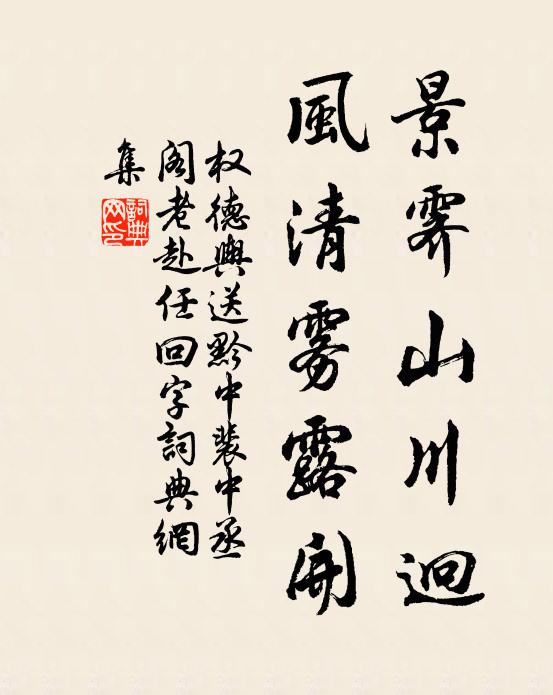 景霽山川迥
風清雾露開
权德輿送黔中裴中丞
阁老赴任回字詞典網
集
詞典网印